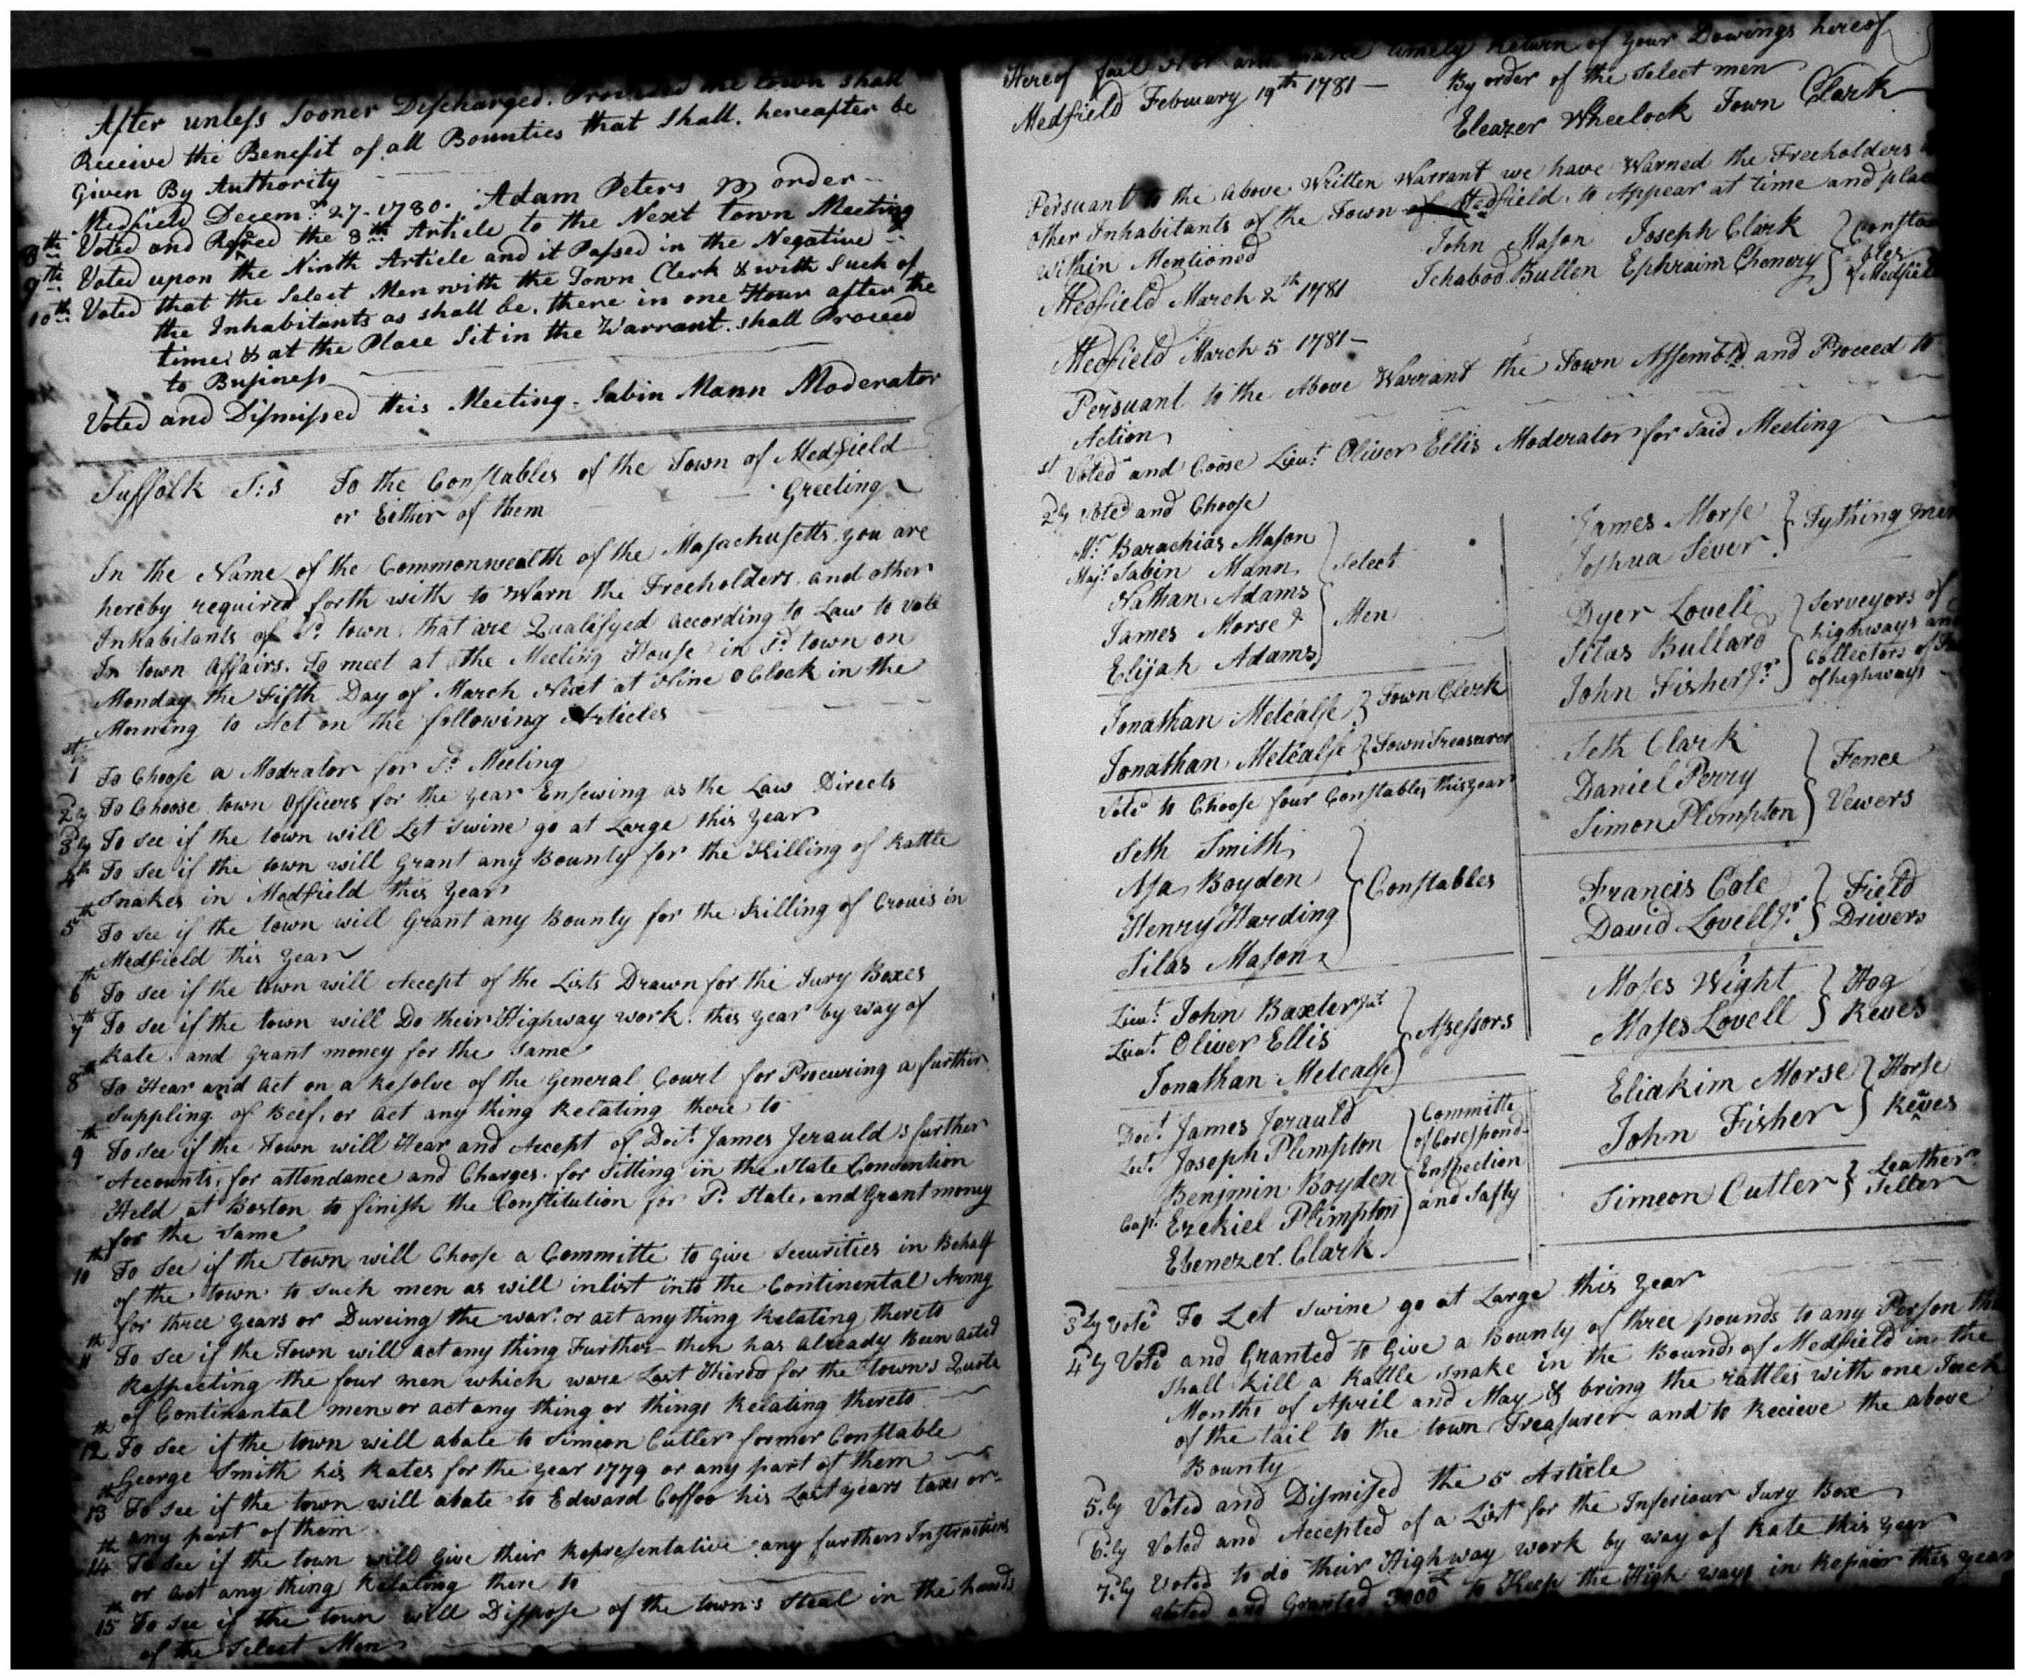 After unless Sooner Discharged. Provided the town shall
Receive the Benefit of all Bounties that Shall. hereafter be
Given By Authority
Medfield Decemr. 27 - 1780. Adam Peters order
8th Voted and Refered the 8th Article to the Next town Meeting
9th Voted upon the Ninth Article and it Passed in the Negative
10th Voted that the Select Men with the Town Clerk & with Such of
the Inhabitants as shall be there in one Hour after the
time & at the Place Sit in the Warrant shall Proceed
to Business
Voted and Dismissed this Meeting - Sabin Mann Moderator
Suffolk S:s To the Constables of the Town of Medfield
or Either of them Greeting
In the Name of the Commonwealth of the Masachusetts you are
hereby required forth with to Warn the Freeholders and other
Inhabitants of Sd. town that are Qualifyed according to Law to vote
In town affairs. To meet at the Meeting House in Sd. town on
Monday the Fifth Day of March Next at Nine oClock in the
Morning to Act on the following Articles
1st To Choose a Modrator for Sd. Meeting
2ly To Choose town officers for the year Ensewing as the Law Directs
3ly To see if the town will Let Swine go at Large this year
4th To see if the town will grant any Bounty for the Killing of Rattle
Snakes in Medfield this year
5th To see if the town will Grant any Bounty for the Killing of Crows in
Medfield this year
6th To see if the town will Accept of the Lists Drawn for the Jury Boxes
7th To see if the town will Do their Highway work this year by way of
Rate and grant money for the Same
8th To Hear and act on a Resolve of the General Court for Procuring a further
Suppling of Beef, or act any thing Relating there to
9th To see if the Town will Hear and Accept of Doct. James Jerauld's further
Accounts, for attendance and Charges for Sitting in the State Convention
Held at Boston to finish the Constitution for Sd. State, and Grant money
for the Same
10th To see if the town will Choose a Committe to Give Securities in Behalf
of the town to such men as will inlist into the Continental Army
for three years or Dureing the war or act any thing Relating thereto
11th To see if the Town will act any thing Further then has already Been acted
Respecting the four men which ware Last Hiered for the Towns Quota
of Continantal men or act any thing or things Relating thereto
12th To see if the town will abate to Simeon Cutler former Constable
George Smith his Rates for the year 1779 or any part of them
13th To see if the town will abate to Edward Coffoo his Last years taxes or
any part of them
14th To see if the town will Give their Representative any further Instructions
or act any thing Relating there to
15th To see if the town will Dispose of the town's Steal in the hands
of the Select Men
Hereof fail Not and make timely Return of your Dowings hereof
Medfield February 19th 1781 - By order of the Select men
Eleazer Wheelock Town Clark
Persuant to the above Written Warrant we have Warned the Freeholders
other Inhabitants of the Town of Medfield, to Appear at time and place
Within Mentioned John Mason Joseph Clark
Medfield March 2th 1781 Ichabod Bullen Ephraim Chenery Constables of Medfield
Medfield March 5 1781 -
Persuant to the Above Warrant the Town Assembld. and Proceed to
Action
1st Voted and Coose Lieut. Oliver Ellis Moderator for said Meeting
2ly Voted and Choose
Mr. Barachias Mason
Majr. Sabin Mann
Nathan Adams
James Morse &
Elijah Adams
Select Men
Jonathan Metcalfe Town Clerk
Jonathan Metcalfe Town Treasurer
Voted to Choose four Constables this year
Seth Smith
Asa Boyden
Henry Harding
Silas Mason
Constables
Lieut. John Baxter Junr
Lieut. Oliver Ellis
Jonathan Metcalfe
Assessors
Doct. James Jerauld
Lieut. Joseph Plimpton
Benjmin Boyden
Capt. Ezekiel Plimpton
Ebenezer Clark
Committe
of Corespond-
Enspection
and Safty
James Morse
Joshua Sever
Tything men
Dyer Lovell
Silas Bullard
John Fisher Jr.
Serveyors of
highways and
Collectors of
of highways
Seth Clark
Daniel Perry
Simon Plimpton
Fence
Vewers
Francis Cole
David Lovell Jr
Field
Drivers
Moses Wight
Moses Lovell
Hog
Reves
Eliakim Morse
John Fisher
Horse
Reves
Simeon Cutler
Leather
Seller
3ly Voted To Let Swine go at Large this year
4ly Voted and Granted to Give a Bounty of three pounds to any Person that
shall kill a Rattle Snake in the Bounds of Medfield in the
Months of April and May & bring the rattles with one Inch
of the tail to the town Treasurer and to Recieve the above
Bounty
5ly Voted and Dismised the 5 Article
6ly Voted and Accepted of a List for the Inferiour Jury Box
7ly Voted to do their Highway work by way of Rate this year
Voted and Granted 3000£ to Keep the High ways in Repair this year